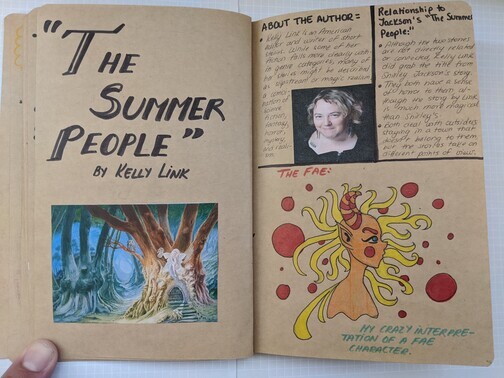 "THE
SUMMER
PEOPLE"
BY KELLY LINK
ABOUT THE AUTHOR:
• Kelly Link is an American
editor and writer of short
stories. While some of her
fiction falls more clearly with-
in genre categories, many of
her stories might be described
as slipstream or magic realism:
a combi-
nation of
science
fiction,
fantasy,
horror,
mystery,
and
Relationship to
Jackson's "The Summer
People:"
• Although the two stories
are not directly related
or connected, Kelly Link
did grab the title from
Shirley Jackson's story.
• They both have a sense
of horror to them al-
though the story by Link
is much more magical
than Shirley's.
• Both deal with outsiders
staying in a town that
doesn't belong to them
but the stories take on
different points of view.
THE FAE:
MY CRAZY INTERPRE-
TATION OF A FAE
CHARACTER.